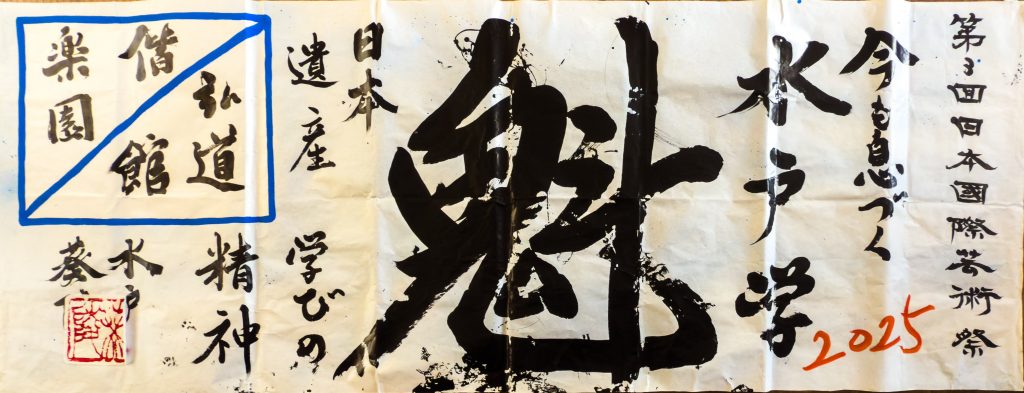 第3回日本國際芸術祭
今も息づく
水戸学
2025
魁
日本
遺産 学びの
精神
弘道館
偕楽園
水戸
葵